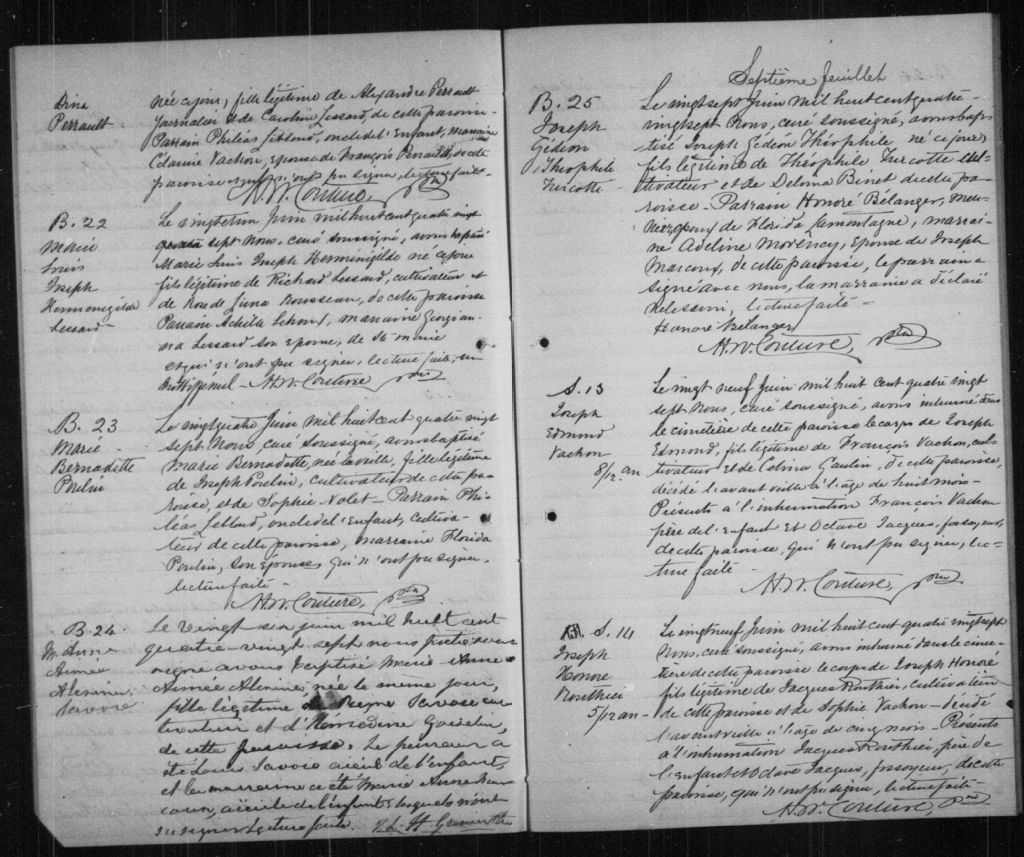 Dina
Perrault
née ce jour, fille légitime de Alexandre Perrault
journalier et de Caroline Lessard, de cette paroisse
Parrain Philéas Leblond, oncle de l'Enfant, marraine
Vachon, Epouse de François Perrault, de cette
paroisse qui n'ont pu signer, lecture faite -
H.W. Couture, ptre
B. 22
Marie
Louis
Joseph
Hermenegilde
Lessard
Le vingt et un Juin mil huit cent quatre vingt
sept Nous, curé soussigné, avons baptisé
Marie Luis Joseph Herminigilde né ce jour
fils légitime de Richard Lessard, cultivateur et
de Rose de Lima Rousseau, de cette paroisse
Parrain Achille, marraine Georgian-
na Lessard son Epouse, de Ste marie
et qui n'ont pu signer, lecture faite, un
H.W. Couture ptre
B. 23
Marie
Bernadette
Poulin
Le vingtquatre Juin mil huit cent quatre vingt
sept Nous, curé soussigné, avons baptisé
Marie Bernadette, née la veille, fille légitime
de Joseph Poulin, cultivateur de cette pa-
roisse, et de Sophie Nolet - Parrain Phi-
léas Leblond, oncle del'Enfant, cultiva-
teur de cette paroisse, marraine Florida
Poulin, son épouse, qui n'ont pu signer,
lecture faite -
H.W. Couture, ptre
B. 24.
M. Anne
Aimée
Alexina
Savoie
Le vingt six juin mil huit cent
quatre-vingt sept nous prêtre sous-
signé avons baptisé Marie-Anne
Aimée Alexina, née le même jour,
fille légitime de Savoie cul-
tivateur et d'Gosselin,
de cette paroisse. Le parrain a
été Louis Savoie aïeul de l'enfant,
et la marraine a été Marie Anne
aïeule de l'enfant lesquels n'ont
su signer. Lecture faite.
Septième feuillet
B. 25
Joseph
Gédéon
Théophile
Turcotte -
Le vingtsept Juin mil huit cent quatre-
vingt sept Nous, curé soussigné, avons bap-
tisé Joseph Gédéon Théophile né ce jour
fils légitime de Théophile Turcotte cul-
tivateur et de Deloma Binet de cette pa-
roisse - Parrain Honoré Bélanger, meu-
nier époux de Florida Lamontagne, marrai-
ne Adeline Morency, Epouse de Joseph
Marcoux, de cette paroisse, le parrain a
signé avec nous, la marraine a déclaré
ne le savoir, lecture faite -
Honoré Belanger
H.W. Couture, ptre
S. 13
Joseph
Edmund
Vachon
8/12 an
Le vingt neuf Juin mil huit cent quatre vingt
sept Nous, curé soussigné, avons inhumé dans
le cimetière de cette paroisse le corps de Joseph
Edmond, fils légitime de François Vachon, cul-
tivateur et de Célina Gaulin, de cette paroisse,
décédé l'avant veille à l'âge de huit mois -
Présents à l'inhumation François Vachon
père de l'enfant et Octave Jacques, fossoyeur,
de cette paroisse, qui n'ont pu signer, lec-
ture faite -
H.W. Couture, ptre
S. 14
Joseph
Honoré
Routhier
5/12 an -
Le vingt neuf Juin mil huit cent quatre vingt sept
Nous, curé soussigné, avons inhumé dans le cime-
tière de cette paroisse le corps de Joseph Honoré
fils légitime de Jacques Routhier, cultivateur
de cette paroisse et de Sophie Vachon - décédé
l'avant veille à l'âge de cinq mois - Présents
à l'inhumation Jacques Routhier, père de
l'enfant et Octave Jacques, fossoyeur, de cette
paroisse, qui n'ont pu signer, lecture faite -
H.W. Couture, ptre